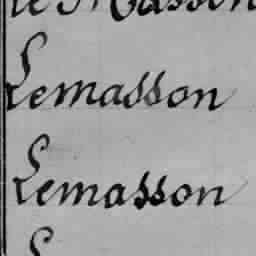 le Masson
Lemasson
Lemasson